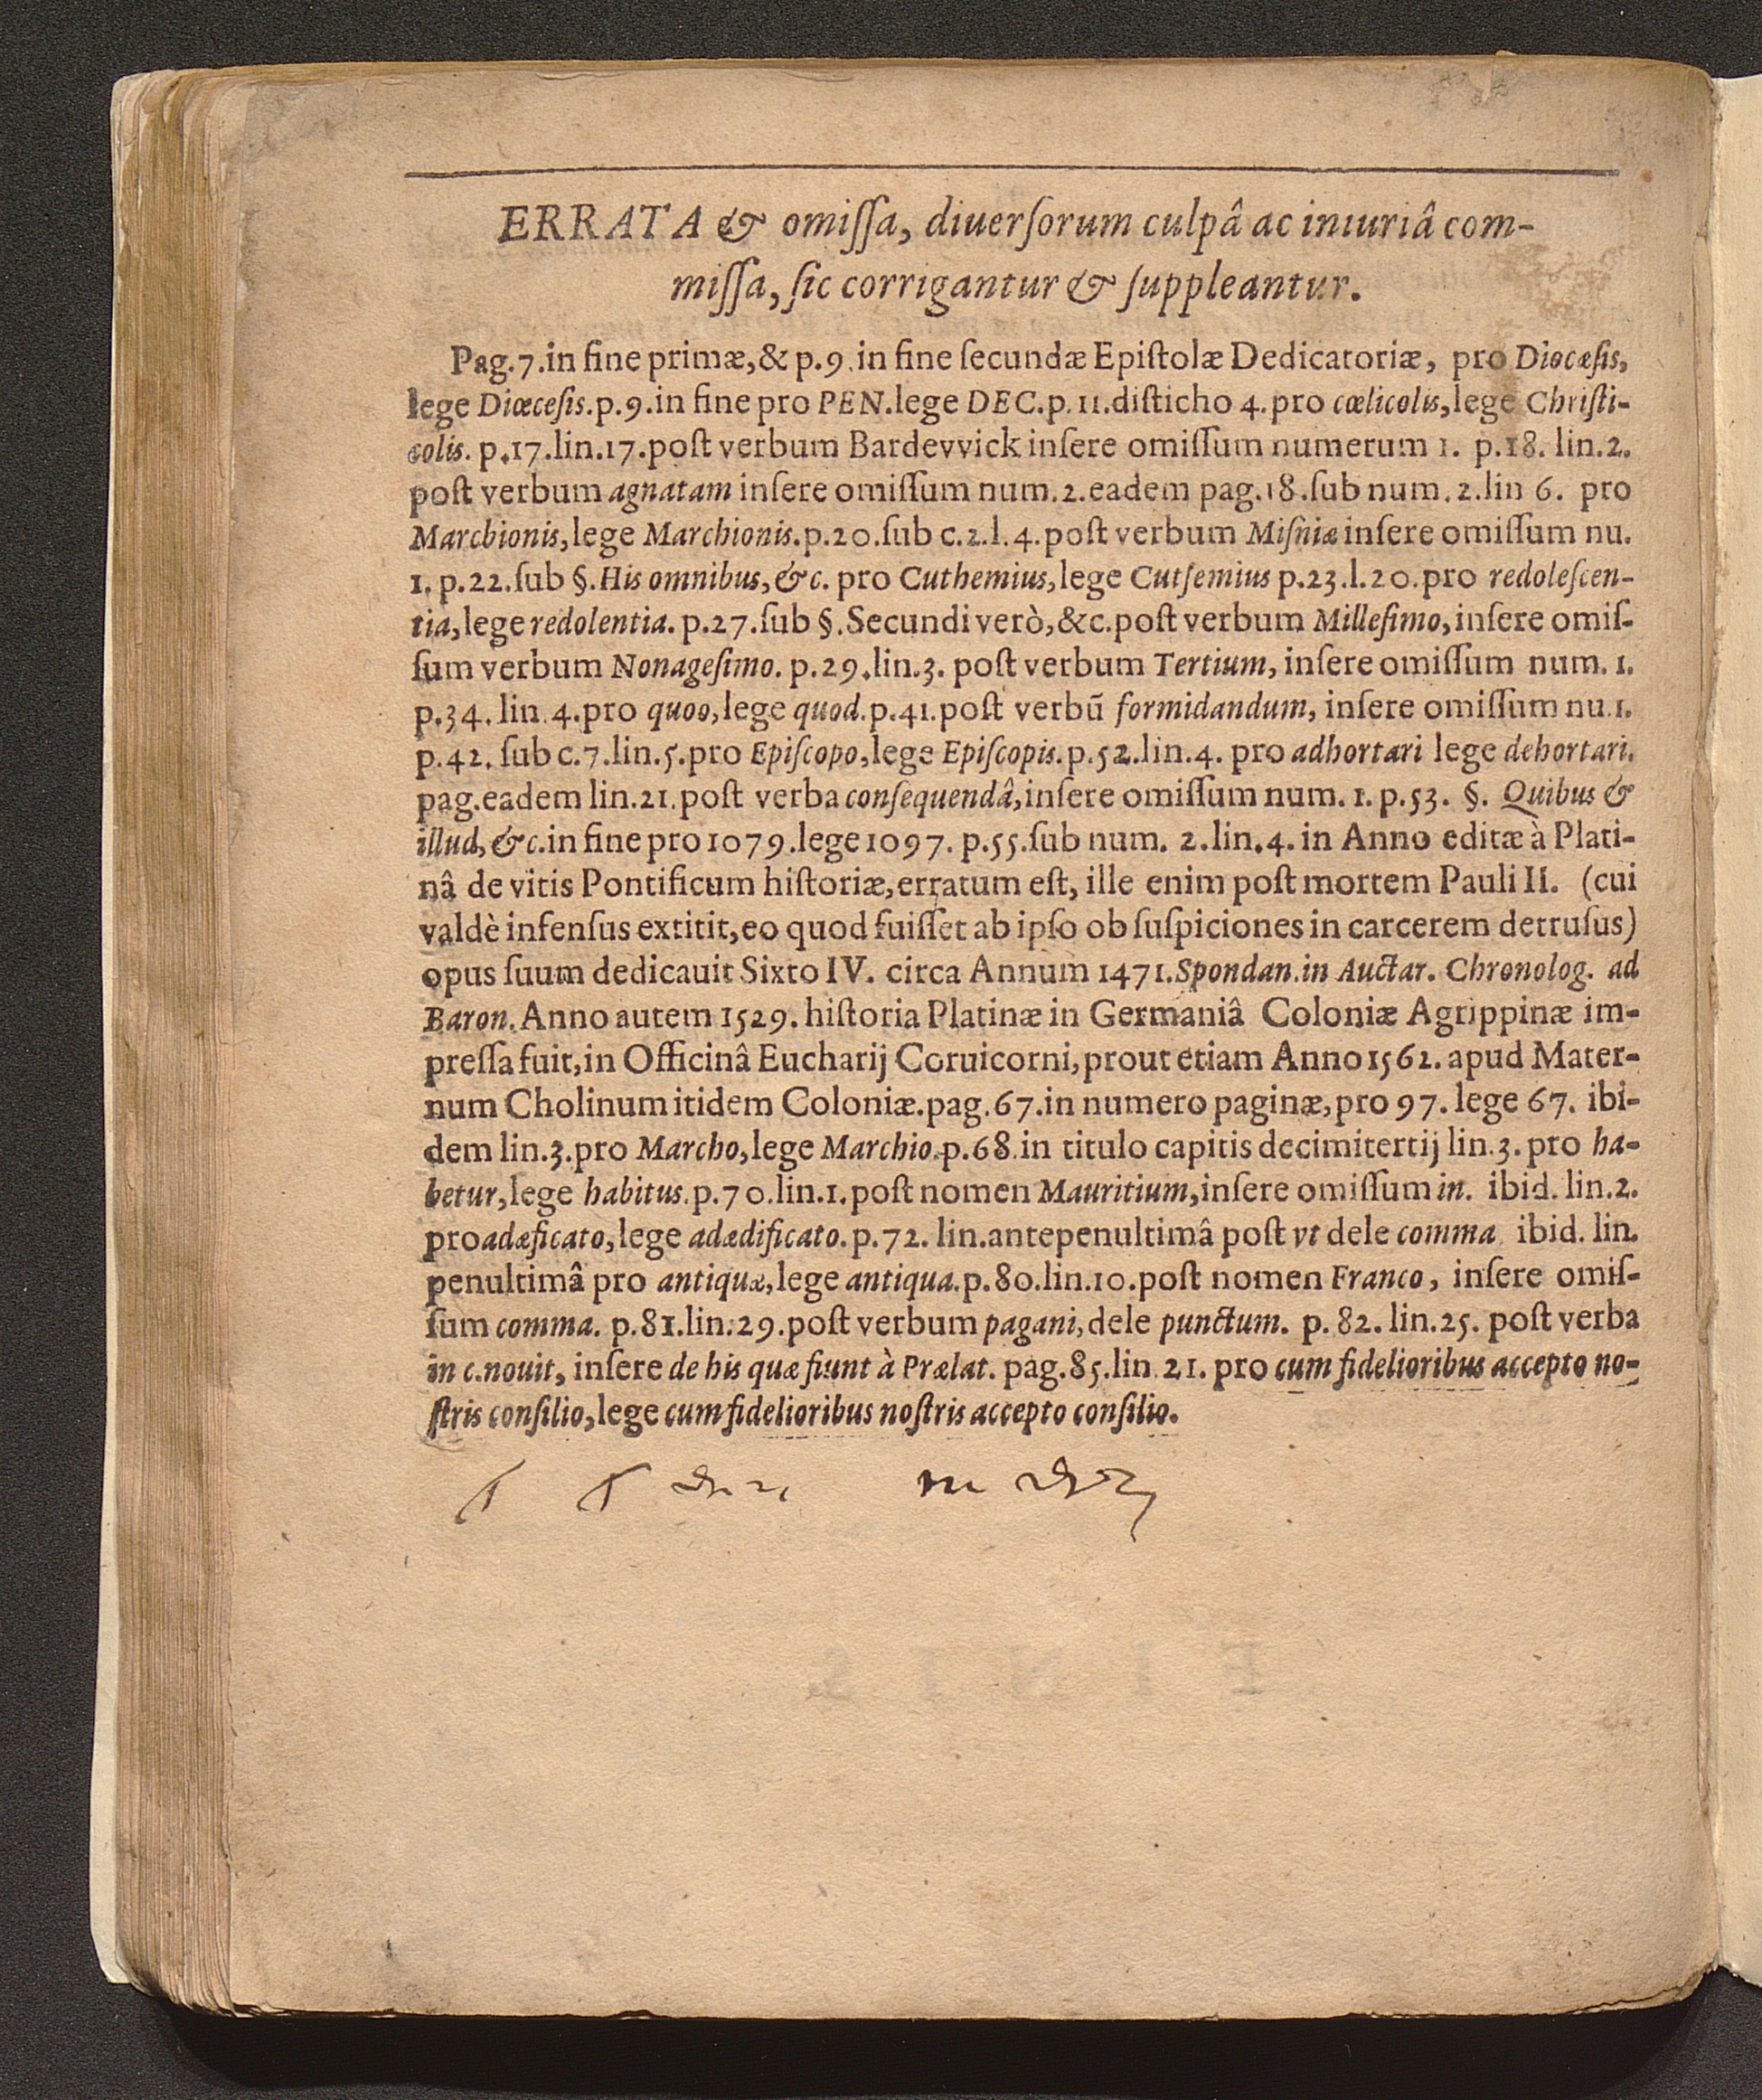 ERRATA & omiſſa, diuerſorum culpâ ac iniuriâ com-
miſſa, ſic corrigantur & ſuppleantur.
Pag.7.in fine primæ,& p.9.in fine ſecundæ Epiſtolæ Dedicatoriæ, pro Diocæſis,
lege Diœceſis.p.9.in fine pro PEN.lege DEC.p.11.diſticho 4.pro cœlicolis,lege Chriſti-
colis. p.17.lin.17.poſt verbum Bardevvick inſere omiſſum numerum 1. p.18. lin.2.
poſt verbum agnatam inſere omiſſum num.2.eadem pag.18.ſub num.2.lin 6. pro
Marcbionis,lege Marchionis.p.20.ſub c.2.l.4.poſt verbum Miſniæ inſere omiſſum nu.
1.p.22.ſub §.His omnibus,&c. pro Cuthemius,lege Cutſemius p.23.l.20.pro redoleſcen-
tia,lege redolentia. p.27.ſub §.Secundi verò,&c.poſt verbum Milleſimo,inſere omiſ-
ſum verbum Nonageſimo. p.29.lin.3. poſt verbum Tertium, inſere omiſſum num. 1.
p.34. lin.4.pro quoo,lege quod.p.41.poſt verbũ formidandum, inſere omiſſum nu.1.
p.42. ſub c.7.lin.5.pro Epiſcopo,lege Epiſcopis.p.52.lin.4. pro adhortari lege dehortari.
pag.eadem lin.21.poſt verba conſequendâ,inſere omiſſum num. 1.p.53. §. Quibus &
illud,&c.in fine pro 1079.lege 1097. p.55.ſub num. 2.lin.4. in Anno editæ à Plati-
nâ de vitis Pontificum hiſtoriæ,erratum eſt, ille enim poſt mortem Pauli II. (cui
valdè infenſus extitit,eo quod fuiſſet ab ipſo ob ſuſpiciones in carcerem detruſus)
opus ſuum dedicauit Sixto IV. circa Annum 1471.Spondan.in Auctar. Chronolog. ad
Baron.Anno autem 1529. hiſtoria Platinæ in Germaniâ Coloniæ Agrippinæ im-
preſſa fuit,in Officinâ Eucharij Coruicorni,prout etiam Anno 1562. apud Mater-
num Cholinum itidem Coloniæ.pag.67.in numero paginæ,pro 97. lege 67. ibi-
dem lin.3.pro Marcho,lege Marchio.p.68.in titulo capitis decimitertij lin.3. pro ha-
betur,lege habitus.p.70.lin.1.poſt nomen Mauritium,inſere omiſſum in. ibid. lin.2.
pro adæficato,lege adædificato.p.72. lin.antepenultimâ poſt vt dele comma. ibid. lin.
penultimâ pro antiquæ,lege antiqua.p.80.lin.10.poſt nomen Franco, inſere omiſ-
ſum comma. p.81.lin.29.poſt verbum pagani,dele punctum. p.82. lin.25. poſt verba
in c.nouit, inſere de his quæ fiunt à Prælat. pag.85.lin.21. pro cum fidelioribus accepto no-
ſtris conſilio,lege cum fidelioribus noſtris accepto conſilio.